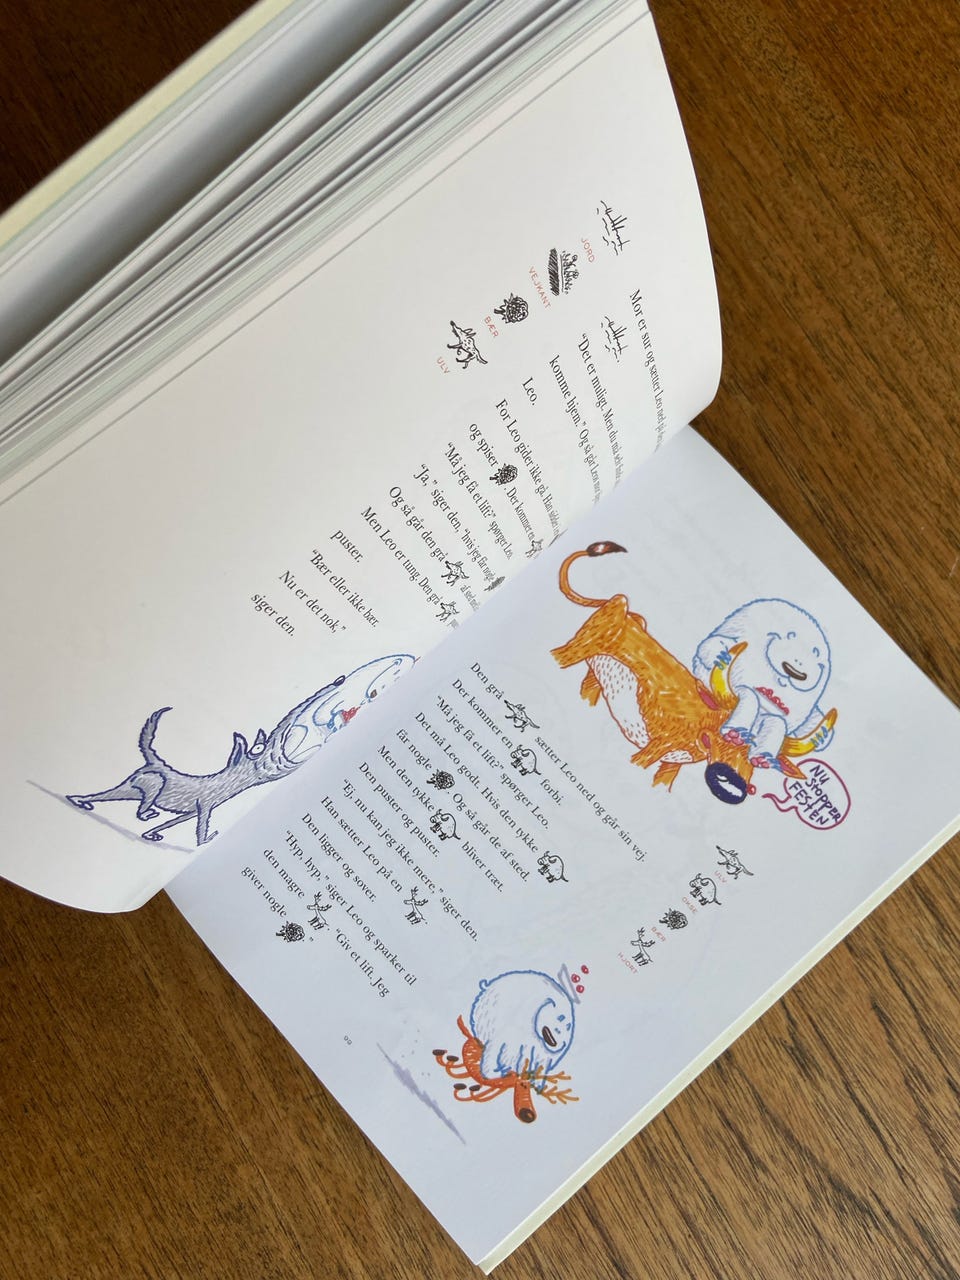 JORD
VEJKANT
BÆR
ULV
Mor er sur og sætter Leo ned på
"Det er muligt. Men du må selv
komme hjem." Og så går Leos mor
Leo.
For Leo gider ikke gå. Han sidder
og spiser . Der kommer en
"Må jeg få et lift?" spørger Leo.
"Ja," siger den, "hvis jeg får nogle
Og så går den grå af sted med
Men Leo er tung. Den grå
puster.
"Bær eller ikke bær.
Nu er det nok,"
siger den.
NU
STOPPER
FESTEN
ULV
OKSE
BÆR
HJORT
Den grå sætter Leo ned og går sin vej.
Der kommer en forbi.
"Må jeg få et lift?" spørger Leo.
Det må Leo godt. Hvis den tykke
får nogle . Og så går de af sted.
Men den tykke bliver træt.
Den puster og puster.
"Ej, nu kan jeg ikke mere," siger den.
Han sætter Leo på en .
Den ligger og sover.
"Hyp, hyp," siger Leo og sparker til
den magre . "Giv et lift. Jeg
giver nogle ."
99